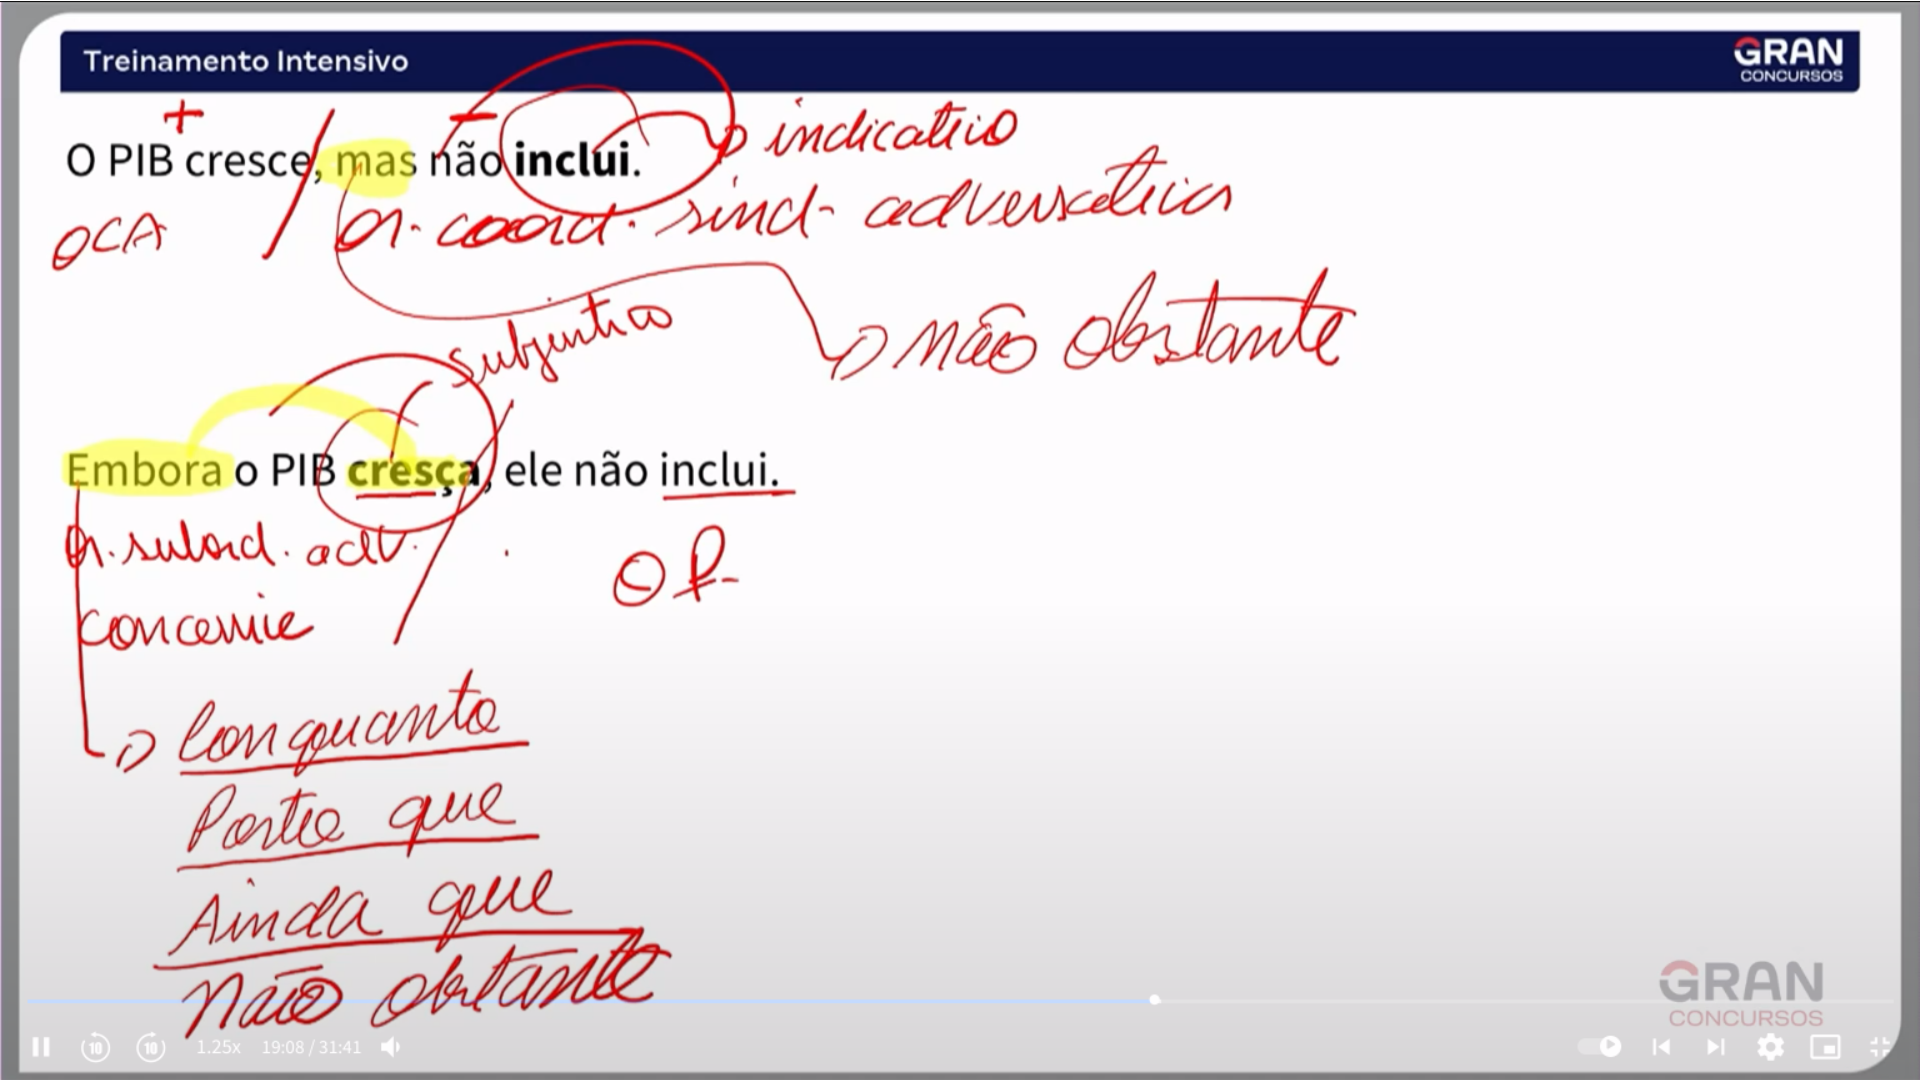 Treinamento Intensivo
GRAN
CONCURSOS
+ -
O PIB cresce, mas não inclui.
indicativo
OCA
or. coord. sind. adversativa
não obstante
subjuntivo
Embora o PIB cresça, ele não inclui.
or. subord. adv.
OP
concessiva
Conquanto
Posto que
Ainda que
não obstante
GRAN
CONCURSOS
10 10 1.25x 19:08 / 31:41